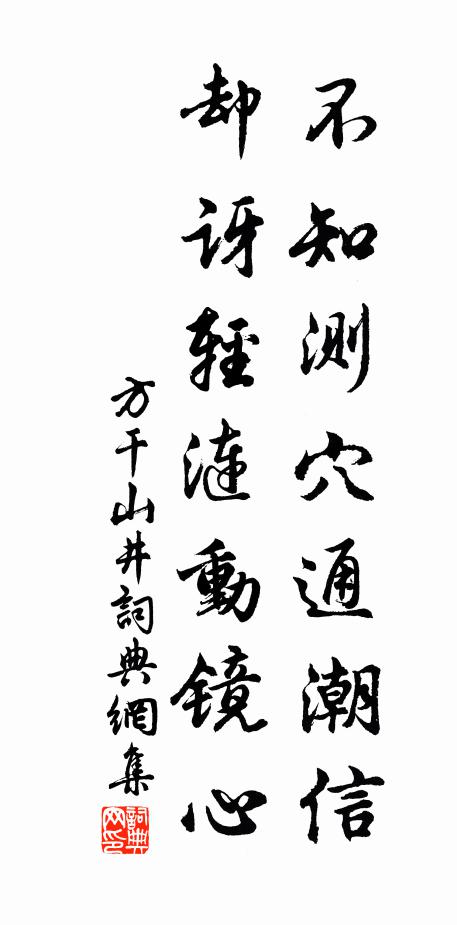 不知測穴通潮信
却訝輕漣動鏡心
方干山井詞典網集
詞典网印